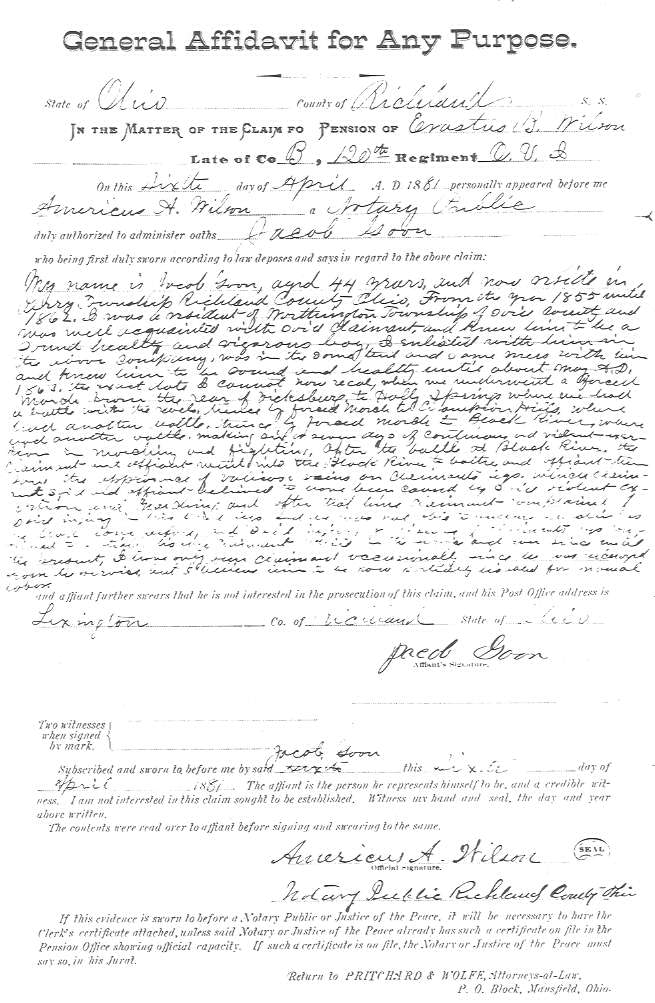 General Affidavit for Any Purpose.
State of Ohio County of Richland S. S.
IN THE MATTER OF THE CLAIM FO PENSION OF Erastus B. Wilson
Late of Co B, 120th Regiment O. V. I
On this Sixte day of April A. D. 1881 personally appeared before me
Americus A. Wilson a Notary Public
duly authorized to administer oaths Jacob Goon
who being first duly sworn according to law deposes and says in regard to the above claim:
My name is Jacob Goon, aged 44 years, and now reside in
Perry Township Richland County Ohio, From the year 1855 until
1862. I was a resident of Worthington Township of said County and
was well acquainted with said Claimant and knew him to be a
sound healthy and vigorous boy, I enlisted with him in
the above Company, was in the same tent and same mess with him
and knew him to be sound and healthy until about May A.D.
1863. the exact date I cannot now recal, when we underwent a forced
March from the rear of Vicksburg, to Holly Springs where we had
a battle with the rebs, thence by forced March to Champion Hills, where
had another battle, thence by forced March to Black River, where
had another battle. making six or seven days of continuous and violent
in marching and fighting, After the battle at Black River, the
Claimant and affiant went into the Black River to bathe, and affiant
the appearance of varicose vains on Claimants legs. which
and affiant believed to have been caused by said violent
and after that time Claimant complained of
said injury in his legs and
the present, I have only seen Claimant occasionally since he was
from the service, but I believe him to be now entirely
labor.
and affiant further swears that he is not interested in the prosecution of this claim, and his Post Office address is
Lexington Co. of Richland State of Ohio
Jacob Goon
Affiant's Signature.
Two witnesses
when signed
by mark.
Jacob Goon
Subscribed and sworn to before me by said this sixte day of
April 1881. The affiant is the person he represents himself to be, and a credible wit-
ness. I am not interested in this claim sought to be established. Witness my hand and seal, the day and year
above written.
The contents were read over to affiant before signing and swearing to the same.
Americus A. Wilson SEAL
Official signature.
Notary Public Richland County Ohio
If this evidence is sworn to before a Notary Public or Justice of the Peace, it will be necessary to have the
Clerk's certificate attached, unless said Notary or Justice of the Peace already has such a certificate on file in the
Pension Office showing official capacity. If such a certificate is on file, the Notary or Justice of the Peace must
say so, in his Jurat.
Return to PRITCHARD & WOLFE, Attorneys-at-Law,
P. O. Block, Mansfield, Ohio.